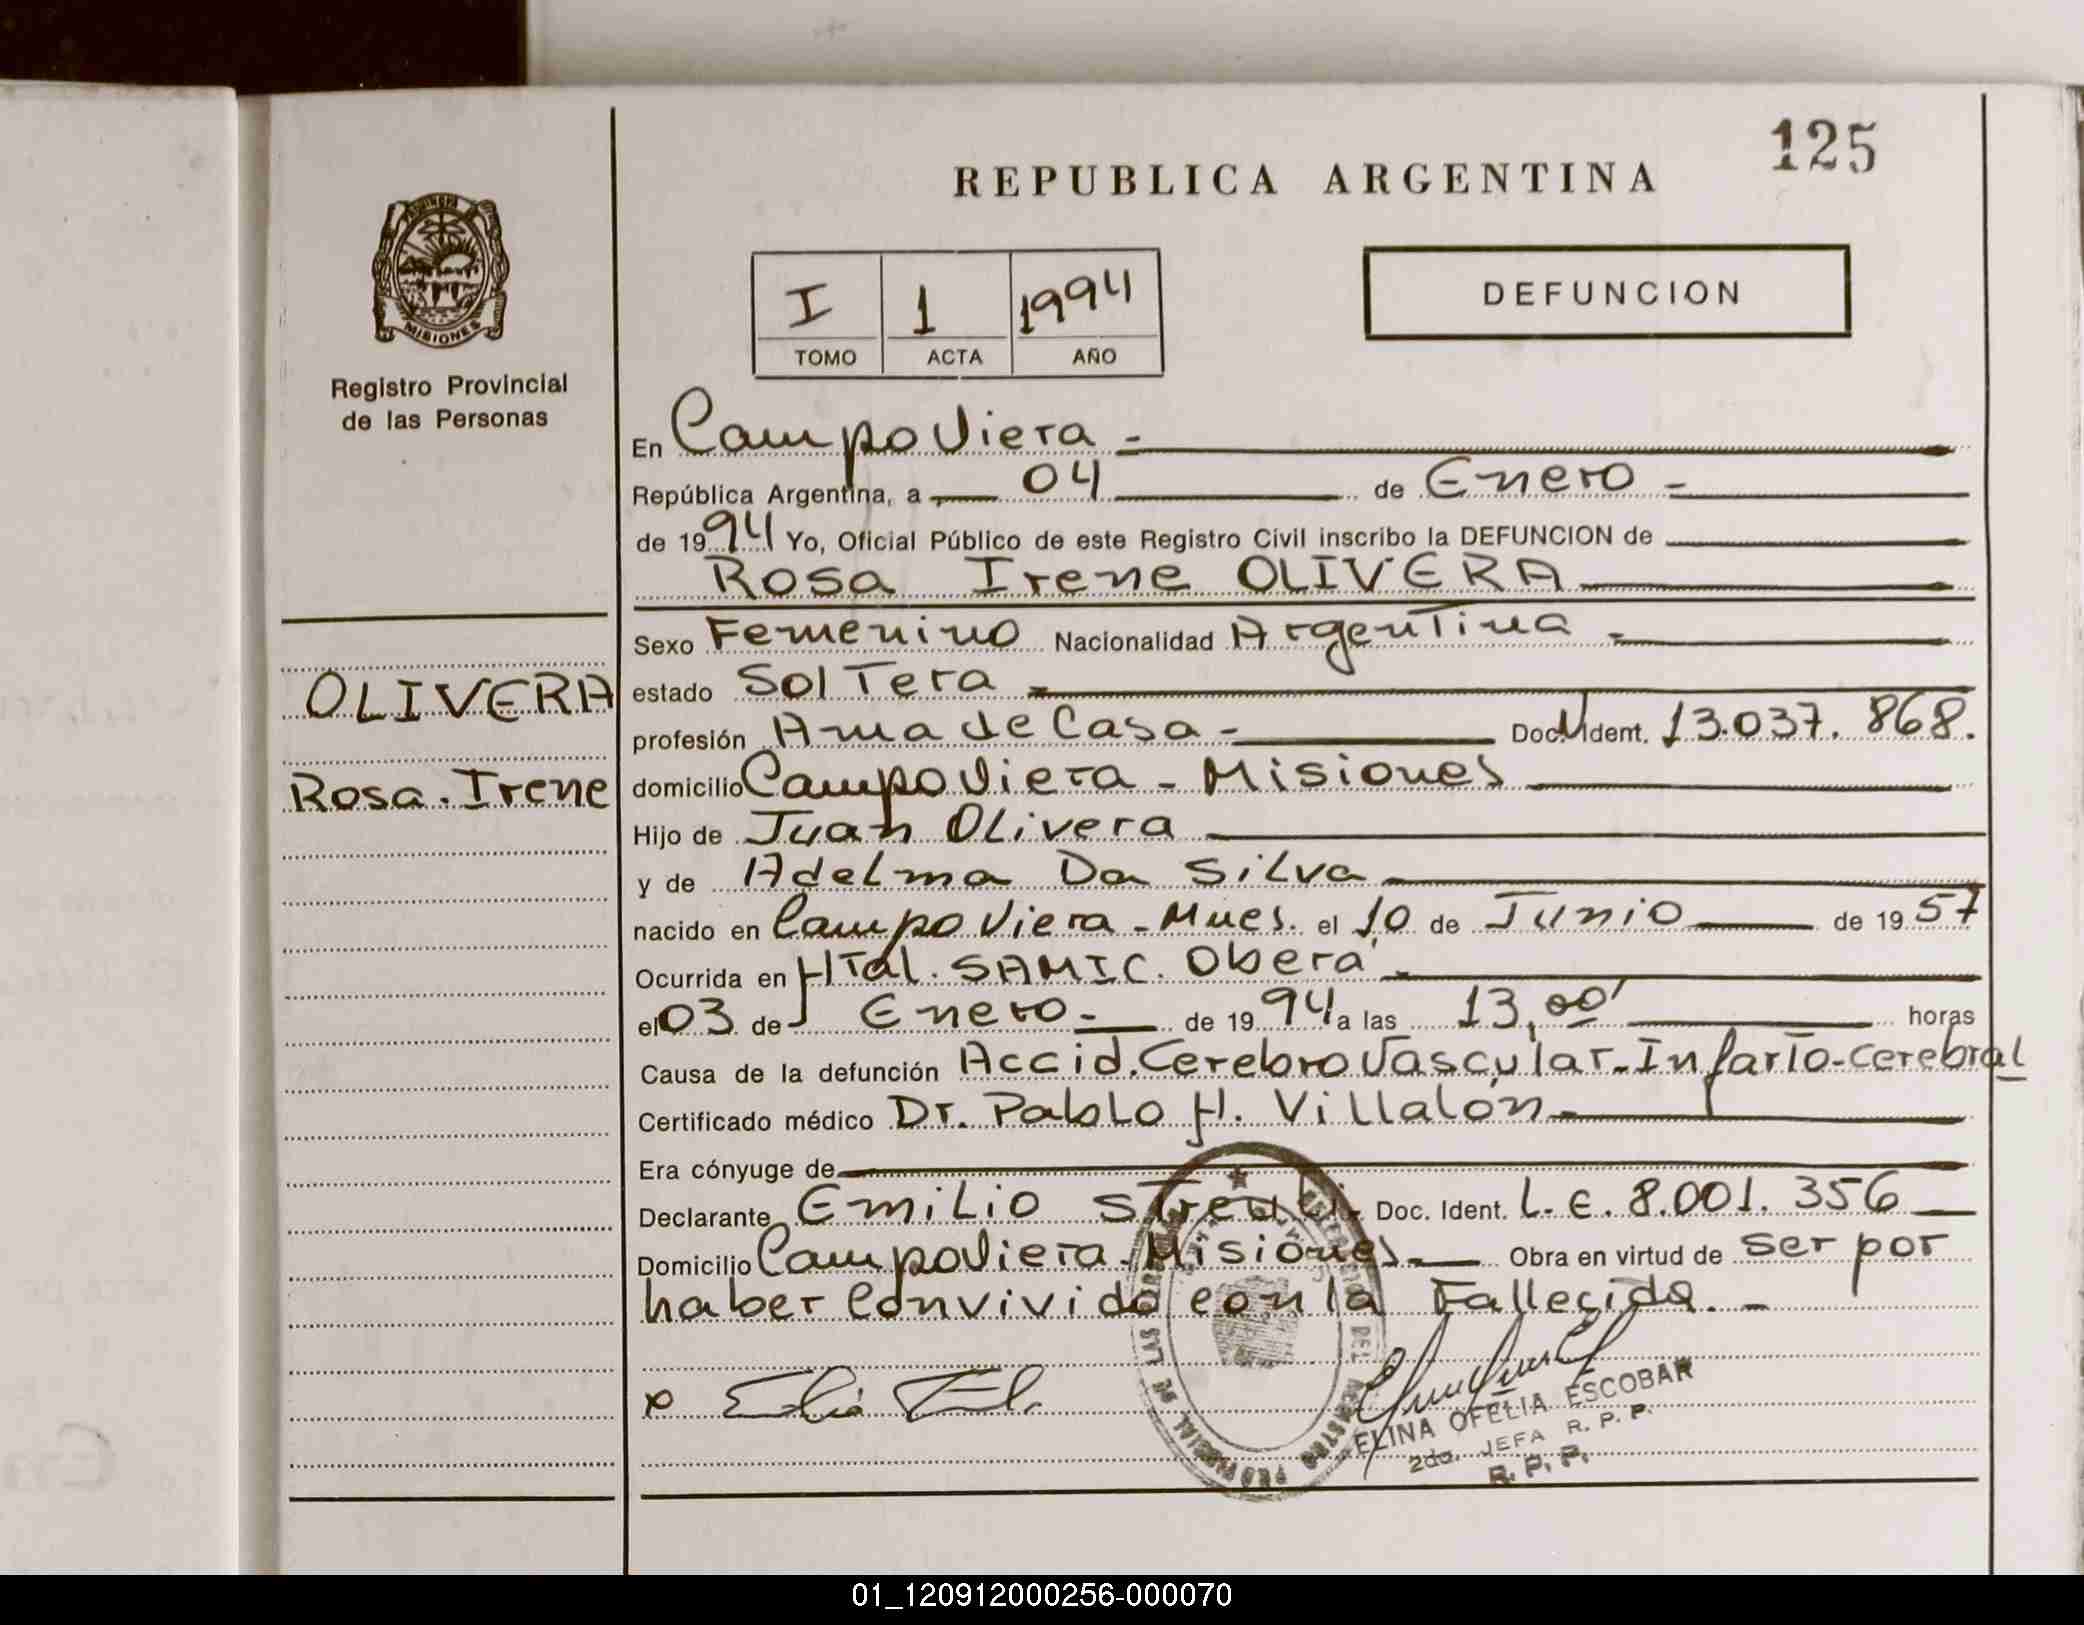 125
REPUBLICA ARGENTINA
PROVINCIA
MISIONES
Registro Provincial
de las Personas
I 1 1994
TOMO ACTA AÑO
DEFUNCION
En Campo Viera -
República Argentina, a 04 de Enero -
de 1994 Yo, Oficial Público de este Registro Civil inscribo la DEFUNCION de
Rosa Irene OLIVERA
OLIVERA
Rosa. Irene
Sexo Femenino Nacionalidad Argentina -
estado Soltera -
profesión Ama de Casa - Doc. Ident. 13.037.868.
domicilio Campo Viera - Misiones
Hijo de Juan Olivera
y de Adelma Da Silva
nacido en Campo Viera - Mnes. el 10 de Junio de 1957
Ocurrida en Htal. SAMIC. Oberá -
el 03 de Enero - de 1994 a las 13,00' horas
Causa de la defunción Accid. Cerebro Vascular - Infarto - Cerebral
Certificado médico Dr. Pablo H. Villalón -
Era cónyuge de
Declarante Emilio Doc. Ident. L.E. 8.001.356
Domicilio Campo Viera - Misiones - Obra en virtud de ser por
haber Convivido con la Fallecida. -
ELINA OFELIA ESCOBAR
2da. JEFA R. P. P.
R. P. P.
01_120912000256-000070